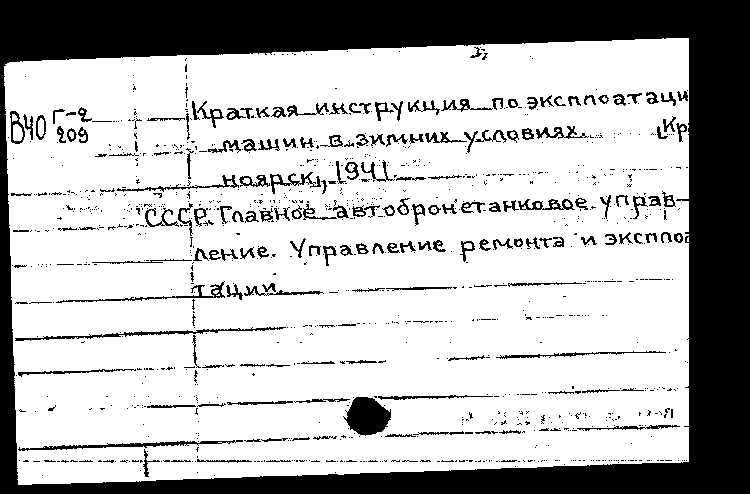 В40 Г-2
209
Краткая инструкция по эксплоатаци
машин в зимних условиях. [Кр
ноярск], 1941.
СССР. Главное автобронетанковое управ-
ление. Управление ремонта и эксплоа
тации.